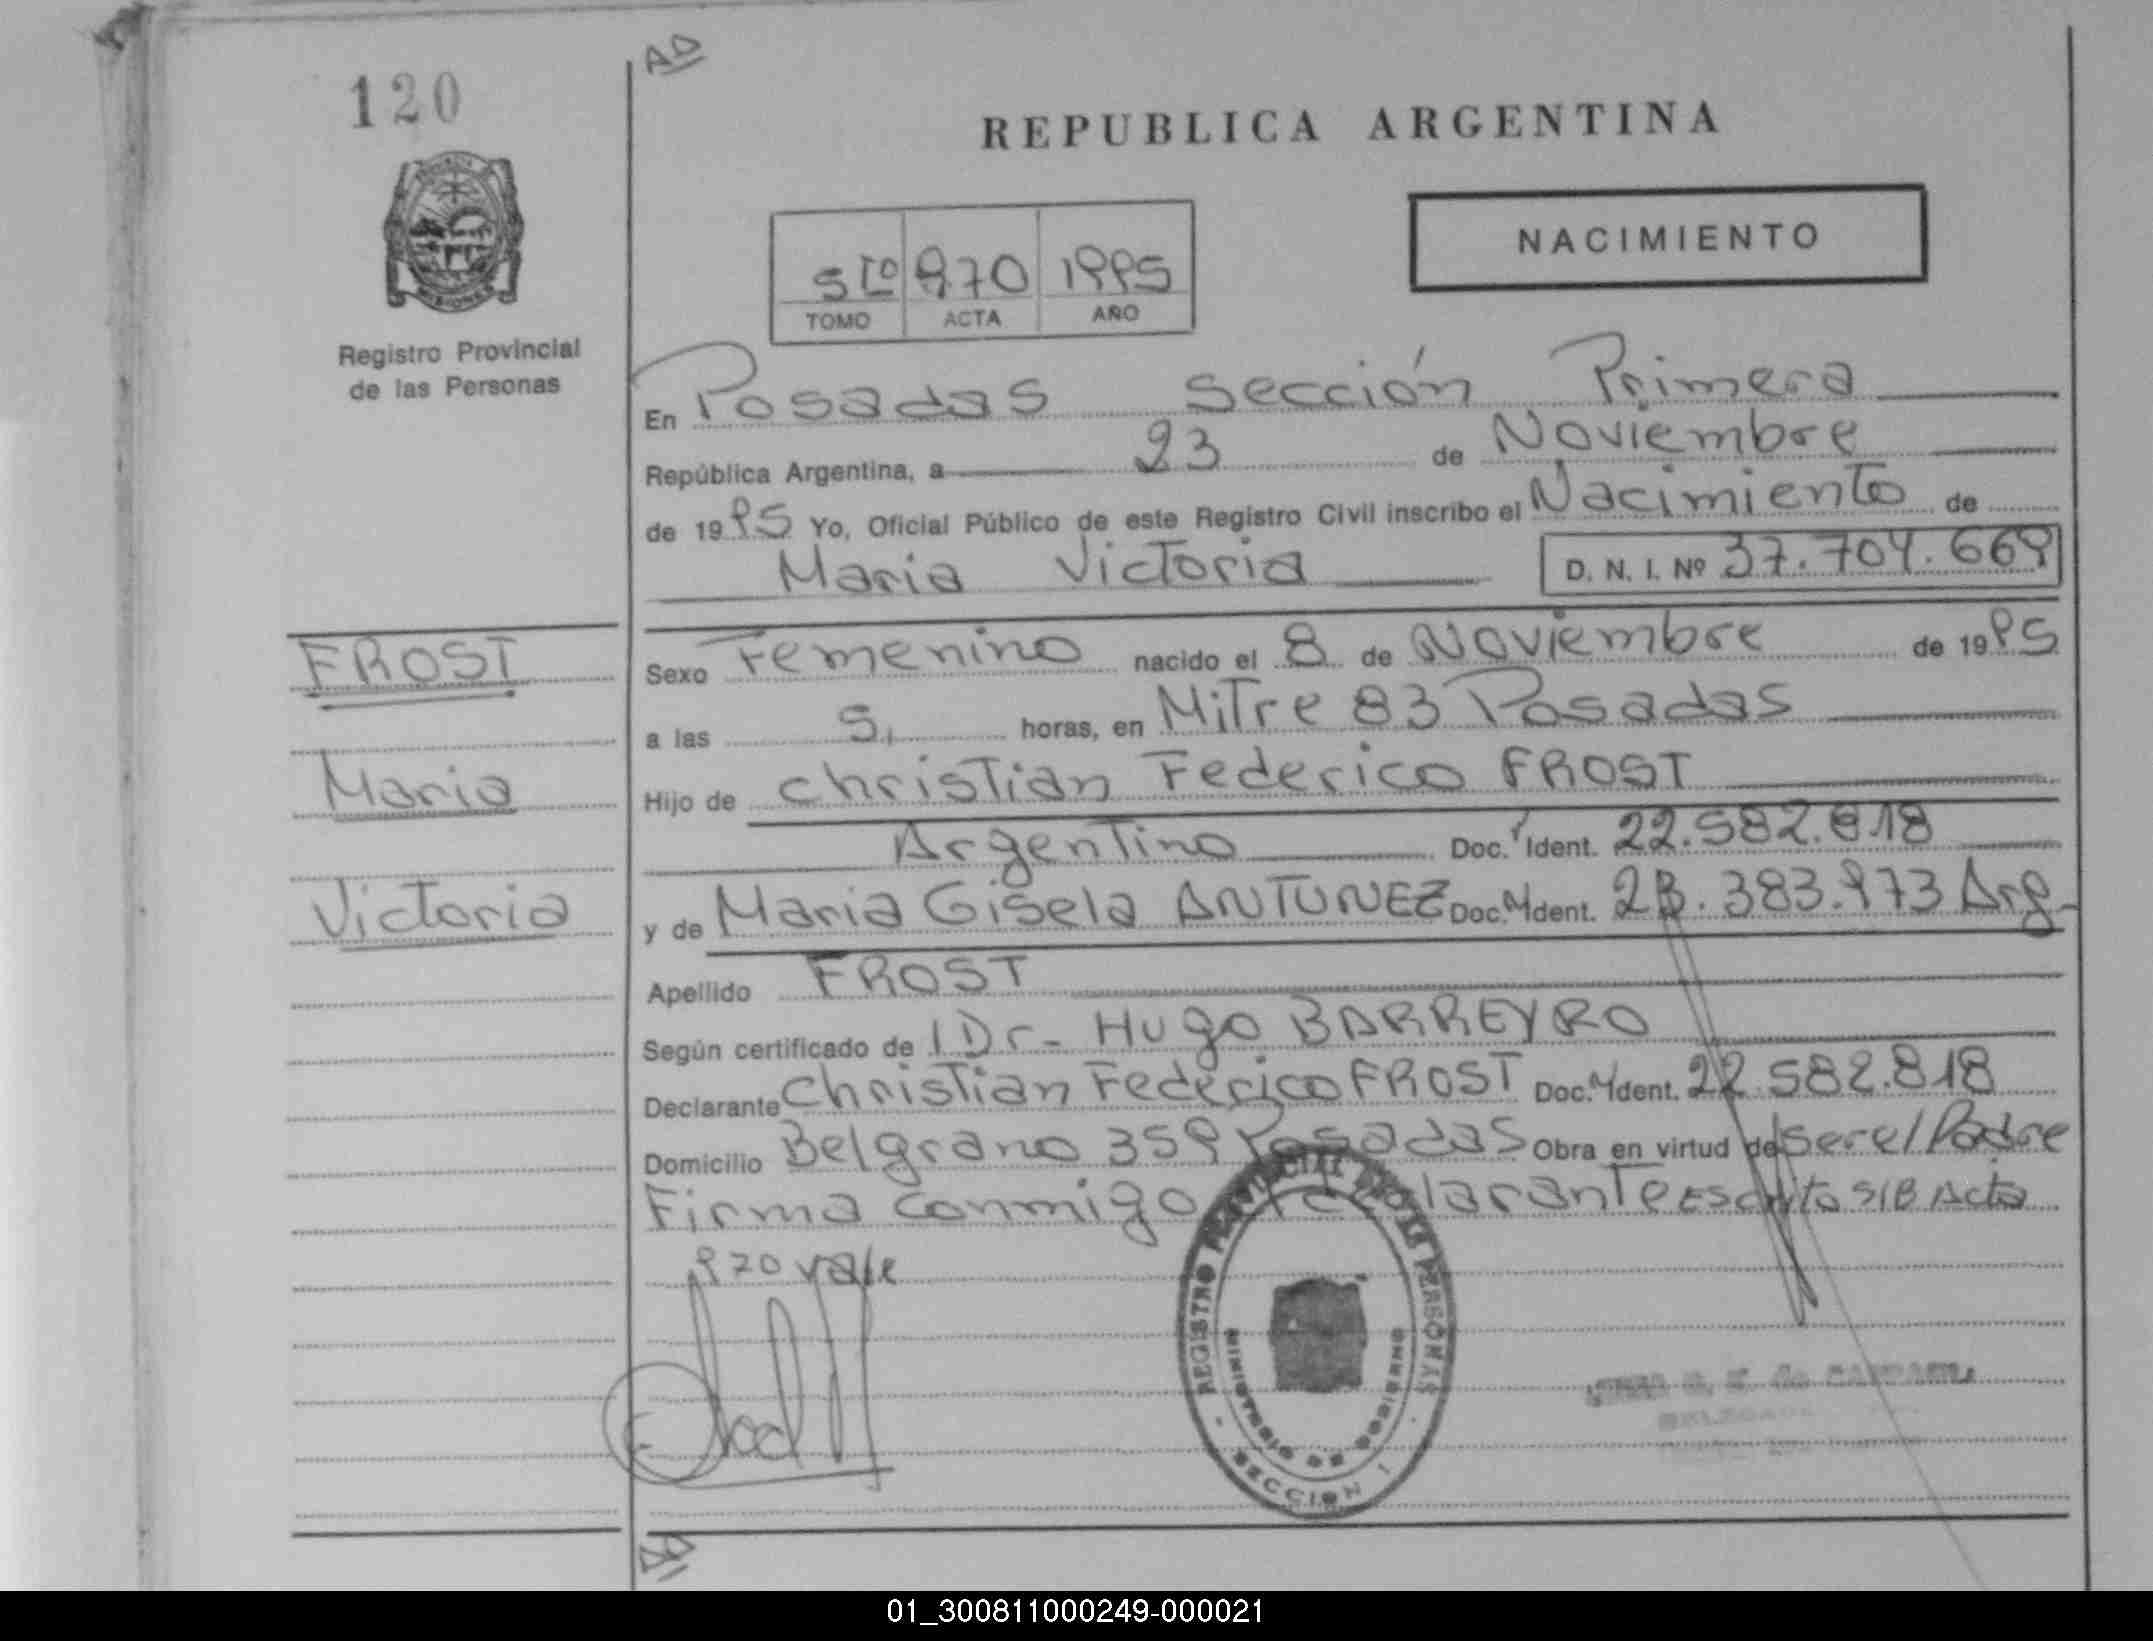 AD
120
REPUBLICA ARGENTINA
NACIMIENTO
5to 970 1995
TOMO ACTA AÑO
MISIONES
Registro Provincial
de las Personas
En Posadas Sección Primera
República Argentina, a 23 de Noviembre
de 1995 Yo, Oficial Público de este Registro Civil inscribo el Nacimiento de
Maria Victoria D. N. I. Nº 37.704.669
FROST
Maria
Victoria
Sexo Femenino nacido el 8 de Noviembre de 1995
a las 5, horas, en Mitre 83 Posadas
Hijo de Christian Federico FROST
Argentino Doc. Ident. 22.582.818
y de Maria Gisela ANTUNEZ Doc. Ident. 23.383.973 Arg.
Apellido FROST
Según certificado de l Dr- Hugo BARREYRO
Declarante Christian Federico FROST Doc. Ident. 22.582.818
Domicilio Belgrano 359 Posadas Obra en virtud de ser el Padre
Firma conmigo declarante Escrito S/B Acta
970 vale
REGISTRO PROVINCIAL DE LAS PERSONAS
MINISTERIO DE GOBIERNO
SECCION I
01_300811000249-000021